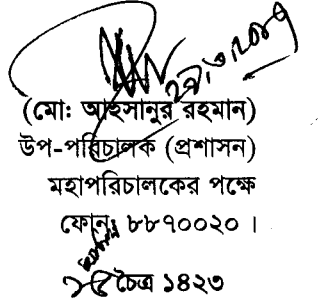 (মো: আহসানুর রহমান)
উপ-পরিচালক (প্রশাসন)
মহাপরিচালকের পক্ষে
ফোন: ৮৮৭০০২০ ।
চৈত্র ১৪২৩